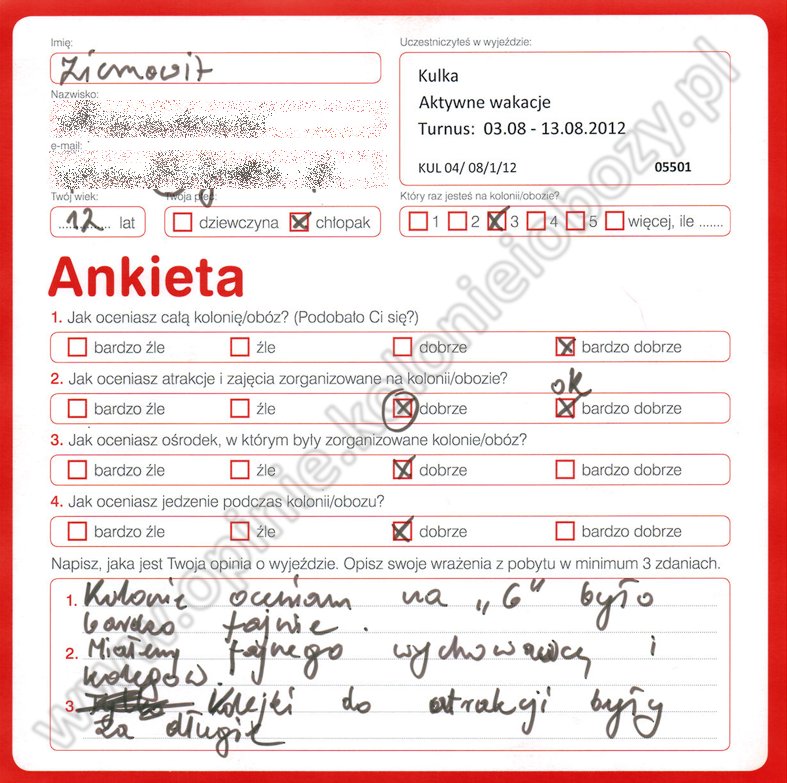 Imię:
Ziemowit
Uczestniczyłeś w wyjeździe:
Kulka
Aktywne wakacje
Turnus: 03.08 - 13.08.2012
KUL 04/ 08/1/12 05501
Nazwisko:
e-mail:
Twój wiek:
12 lat
Twoja płeć:
dziewczyna chłopak
Który raz jesteś na kolonii/obozie?
1 2 3 4 5 więcej, ile .......
Ankieta
1. Jak oceniasz całą kolonię/obóz? (Podobało Ci się?)
bardzo źle źle dobrze bardzo dobrze
2. Jak oceniasz atrakcje i zajęcia zorganizowane na kolonii/obozie?
ok
bardzo źle źle dobrze bardzo dobrze
3. Jak oceniasz ośrodek, w którym były zorganizowane kolonie/obóz?
bardzo źle źle dobrze bardzo dobrze
4. Jak oceniasz jedzenie podczas kolonii/obozu?
bardzo źle źle dobrze bardzo dobrze
Napisz, jaka jest Twoja opinia o wyjeździe. Opisz swoje wrażenia z pobytu w minimum 3 zdaniach.
1. Kolonie oceniam na „6" było
bardzo fajnie.
2. Miałem fajnego wychowawcę i
kolegów.
3. Kolejki do atrakcji były
za długie
www.opinie.kolonieiobozy.pl